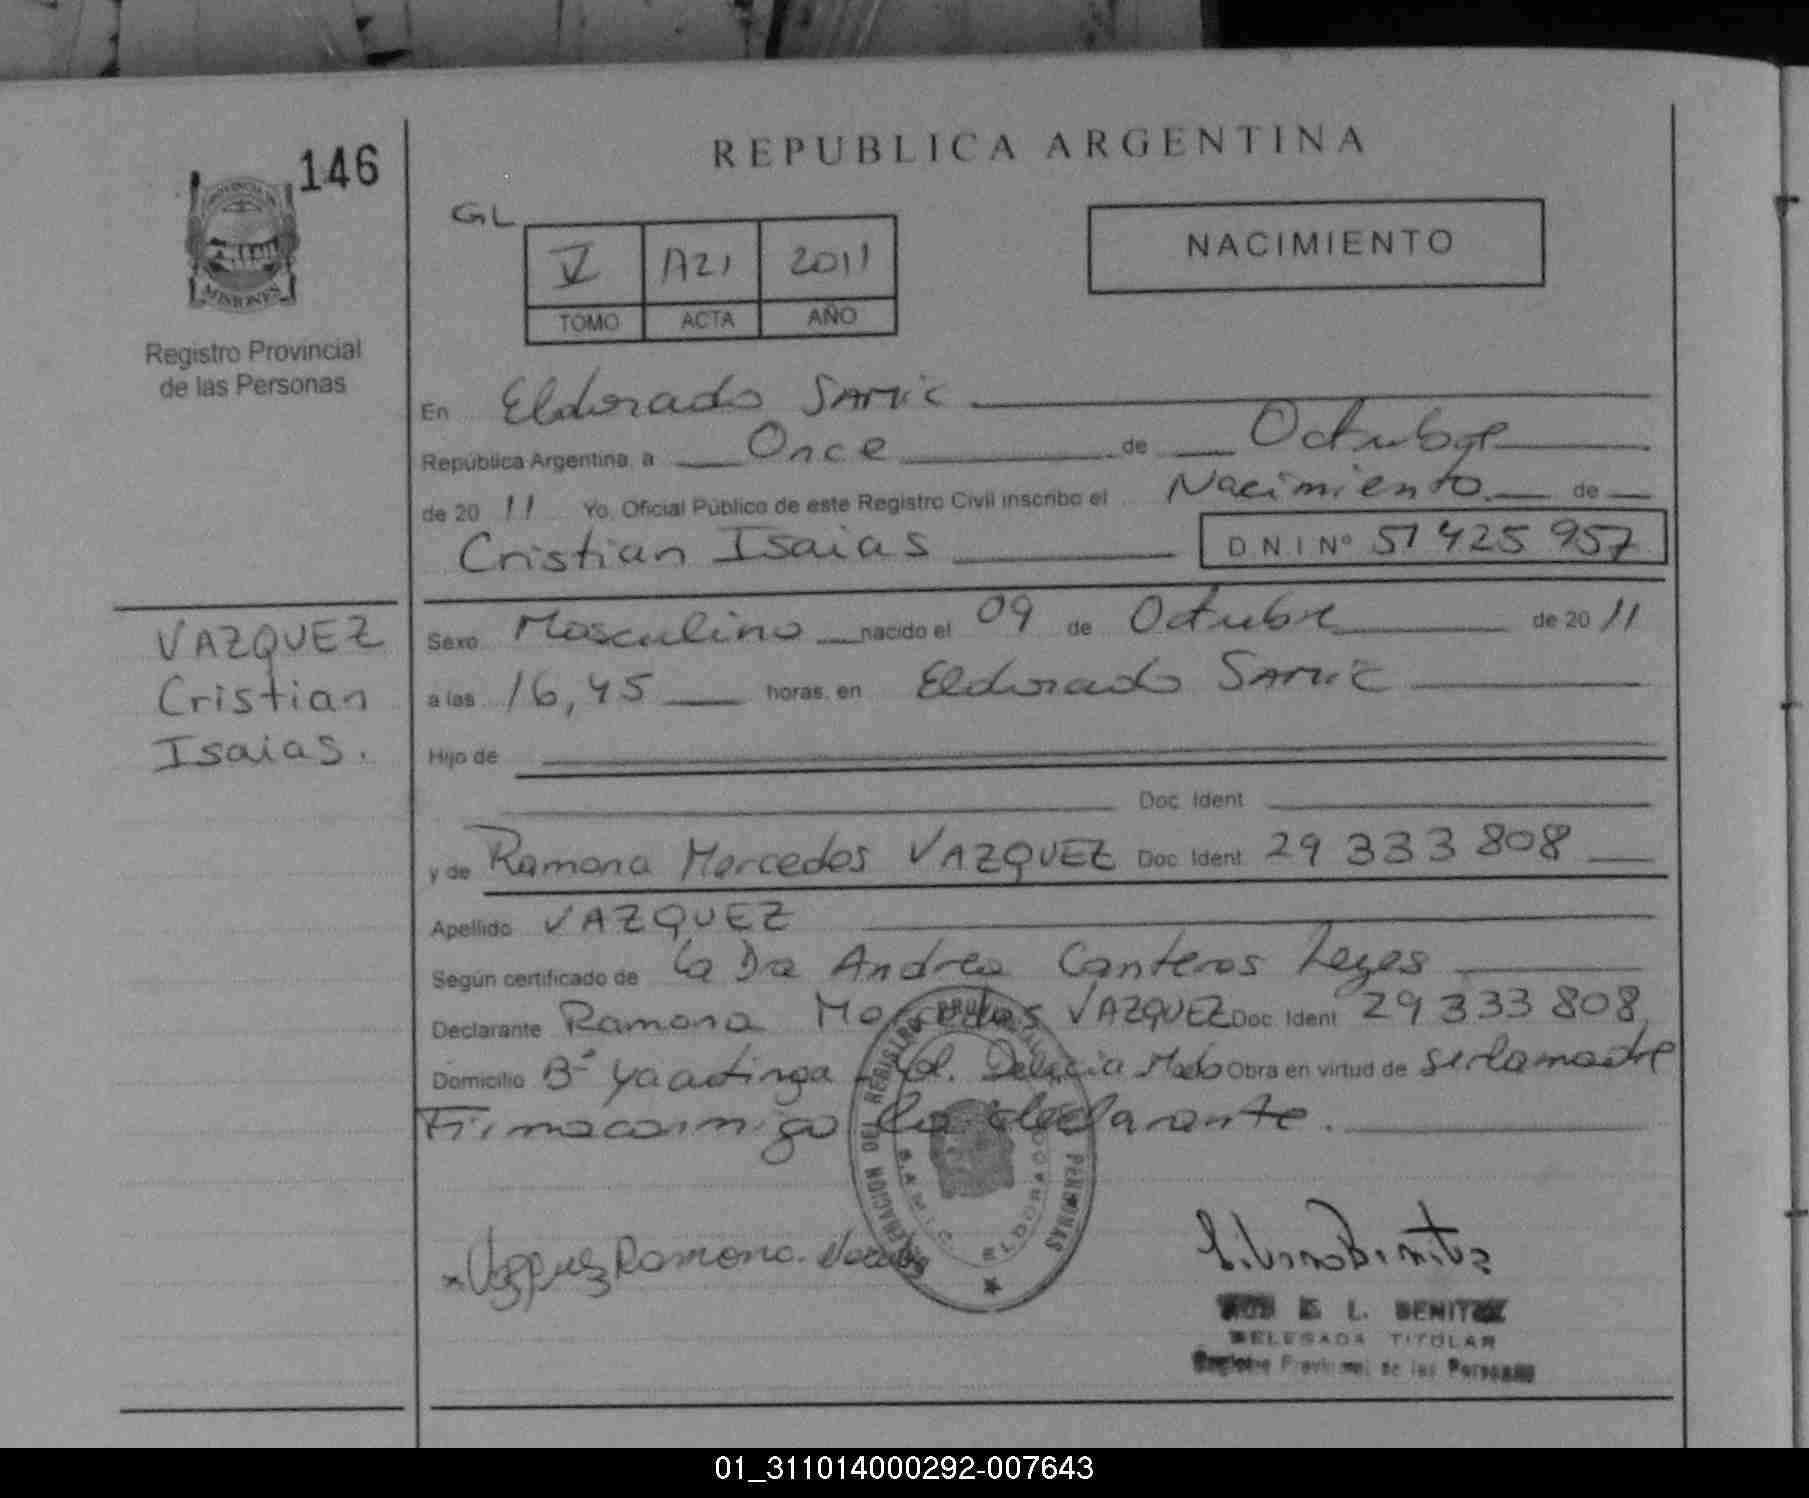 REPUBLICA ARGENTINA
146
PROVINCIA DE
MISIONES
Registro Provincial
de las Personas
GL
V A21 2011
TOMO ACTA AÑO
NACIMIENTO
En Eldorado SAMIC
República Argentina, a Once de Octubre
de 20 11 Yo, Oficial Público de este Registro Civil inscribo el Nacimiento de
Cristian Isaias D N I Nº 51 425 957
VAZQUEZ
Cristian
Isaias.
Sexo Masculino nacido el 09 de Octubre de 20 11
a las 16,45 horas, en Eldorado SAMIC
Hijo de
Doc. Ident.
y de Ramona Mercedes VAZQUEZ Doc. Ident. 29 333 808
Apellido VAZQUEZ
Según certificado de la Dra Andrea Canteros Reyes
Declarante Ramona Mercedes VAZQUEZ Doc. Ident. 29 333 808
Domicilio Bº Col. Delicia Mado Obra en virtud de ser la madre
Firma conmigo la declarante.
DEL REGISTRO PERSONAS
S.A.M.I.C. ELDORADO
Vazquez Ramona
L. BENITEZ
DELEGADA TITULAR
Registro Provincial de las Personas
01_311014000292-007643